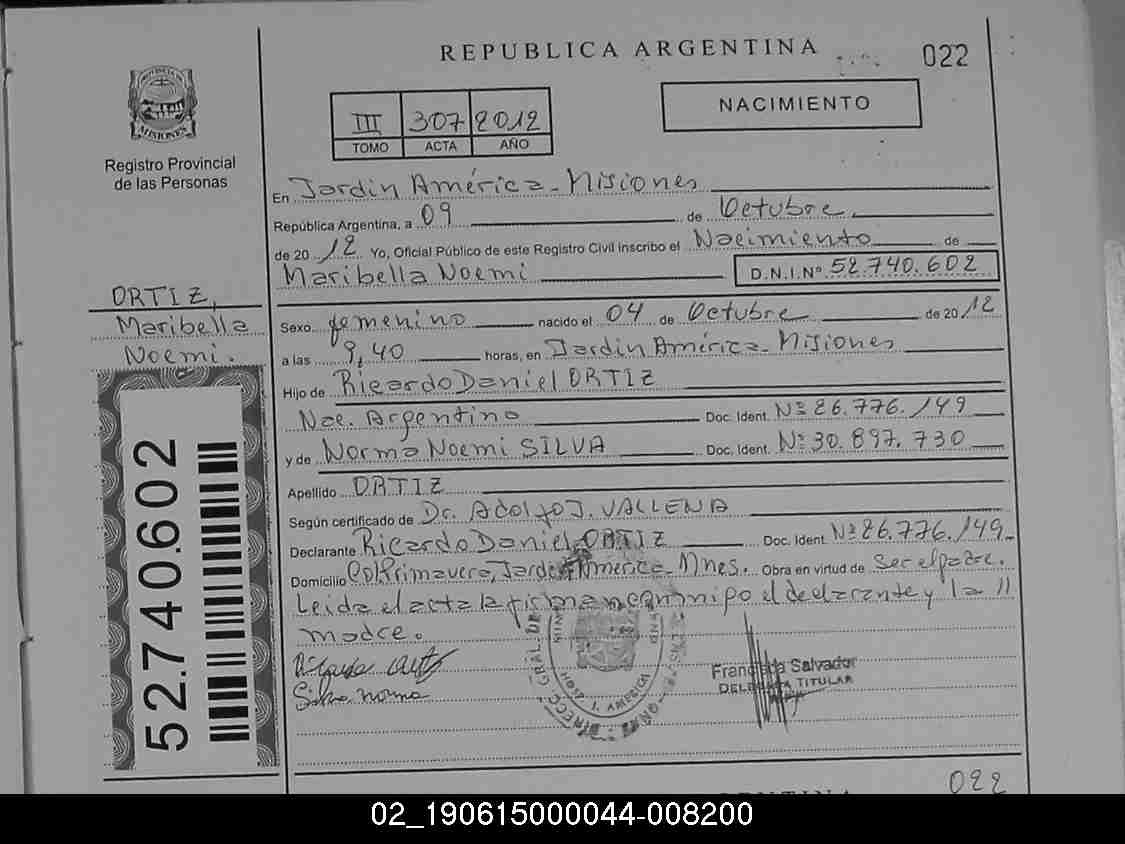 REPUBLICA ARGENTINA
022
PROVINCIA DE
MISIONES
Registro Provincial
de las Personas
III 307 2012
TOMO ACTA AÑO
NACIMIENTO
En Jardin América - Misiones
República Argentina, a 09 de Octubre
de 20 12 Yo, Oficial Público de este Registro Civil inscribo el Nacimiento de
Maribella Noemi D.N.I.Nº 52.740.602
ORTIZ,
Maribella
Noemi.
Sexo femenino nacido el 04 de Octubre de 20 12
a las 9,40 horas, en Jardin América - Misiones
Hijo de Ricardo Daniel ORTIZ
Nac. Argentino Doc. Ident. Nº 26.776.149
y de Norma Noemi SILVA Doc. Ident. Nº 30.897.730
Apellido ORTIZ
Según certificado de Dr. Adolfo J. VALLENA
Declarante Ricardo Daniel ORTIZ Doc. Ident Nº 26.776.149
Domicilio Col. Primavera, Jardin América Mnes. Obra en virtud de Ser el padre.
Leida el acta la firman conmigo el declarante y la //
madre.
Silva Norma
Salvador
TITULAR
J. AMERICA
52.740.602
022
02_190615000044-008200